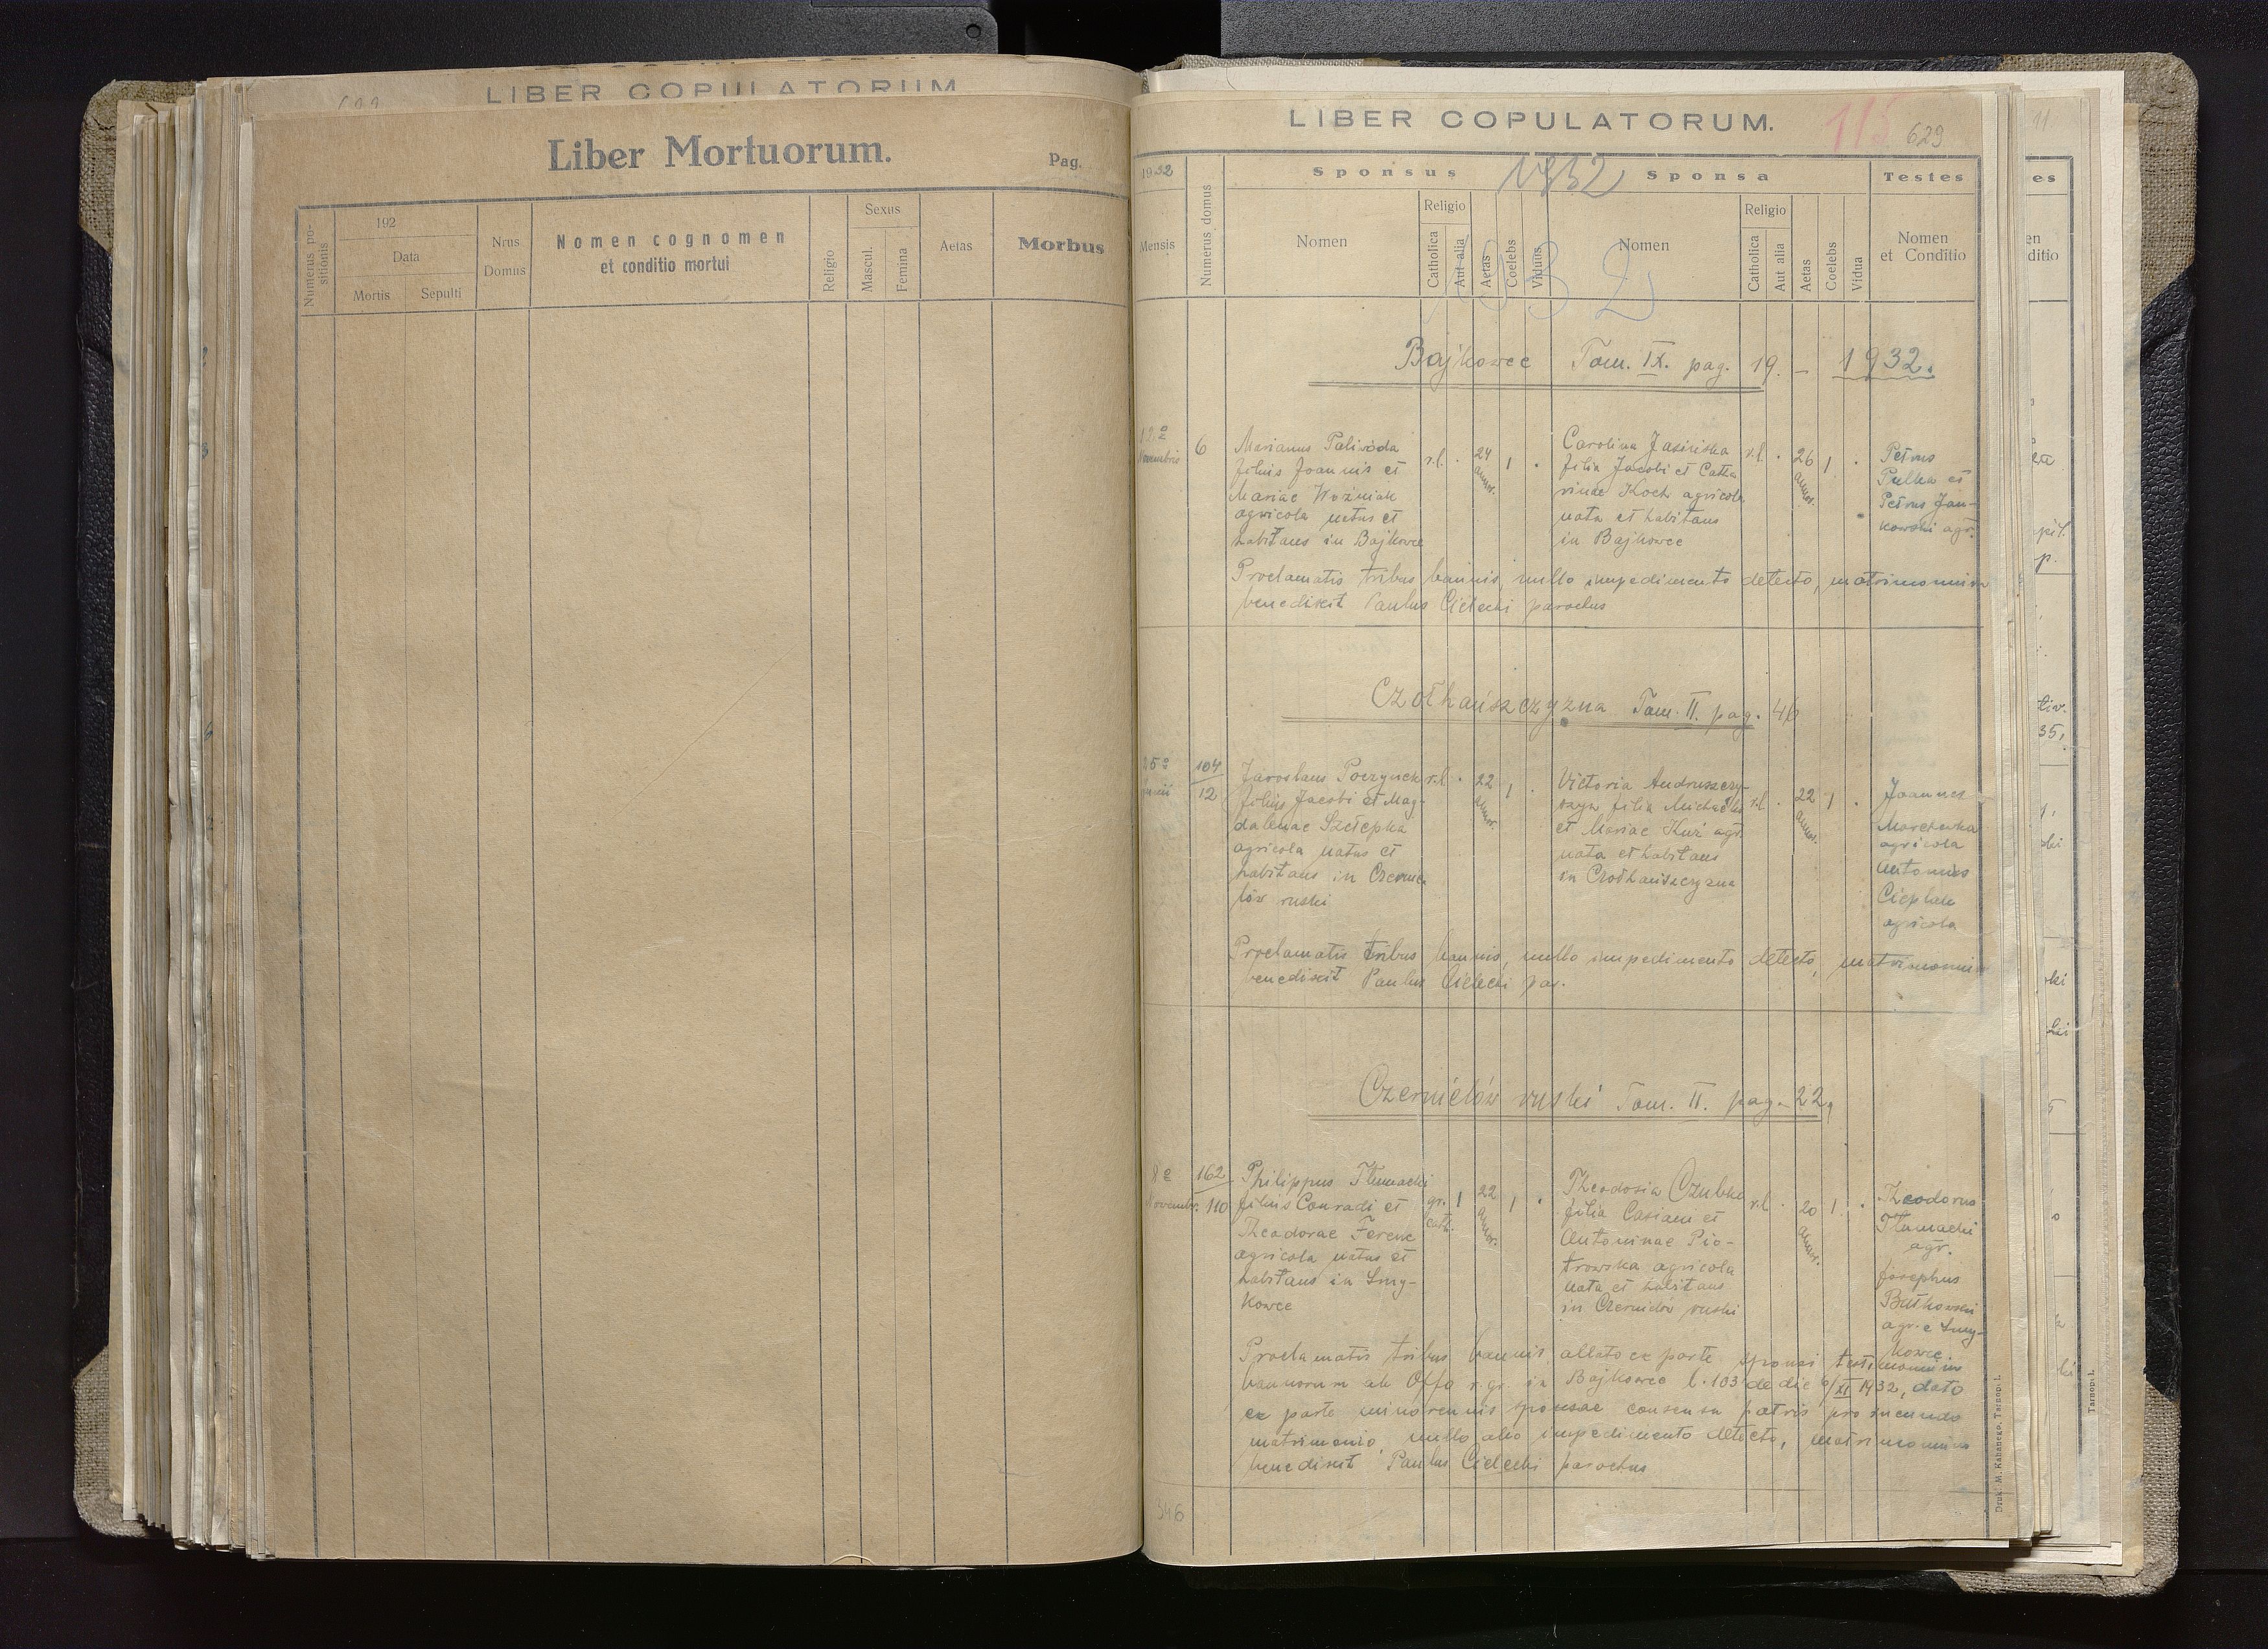 LIBER COPULATORUM
Liber Mortuorum.
Pag.
Numerus positionis
192
Data
Mortis
Sepulti
Nrus
Domus
Nomen cognomen
et conditio mortui
Religio
Sexus
Mascul.
Femina
Aetas
Morbus
LIBER COPULATORUM.
115
629
1932
Mensis
Numerus domus
Sponsus
1932
Sponsa
Testes
Nomen
Religio
Catholica
Aut alia
Aetas
Coelebs
Viduus
Nomen
Religio
Catholica
Aut alia
Aetas
Coelebs
Vidua
Nomen
et Conditio
1932
Bajkowce Tom. IX. pag. 19. — 1932.
Novembris
6
Marianus Paliwoda
filius Joannis et
Mariae Woźniak
agricola natus et
habitans in Bajkowce
r.l. · 24 annor. 1 ·
Carolina Jasińska
filia Jacobi et Catha
rinae Koch agricola
nata et habitans
in Bajkowce
r.l. · 26 annor. 1 ·
Petrus
Pulka et
Petrus Jan-
kowski agr.
Proclamatis tribus bannis, nullo impedimento detecto, matrimonium
benedixit Paulus Cielecki parochus
Czołhańszczyzna Tom. II. pag. 46
25º
104
12
Jaroslaus Poczynek
filius Jacobi et Mag-
dalenae Szczepka
agricola natus et
habitans in Czernie
lów ruski
r.l. · 22 annor. 1 ·
Victoria Andruszczy-
szyn filia Michaelis
et Mariae Kuź agr.
nata et habitans
in Czołhańszczyzna
r.l. · 22 annor. 1 ·
Joannes
Marchewka
agricola
Antonius
Cieplak
agricola
Proclamatis tribus bannis, nullo impedimento detecto, matrimoniu
benedixit Paulus Cielecki par.
Czernielów ruski Tom. II. pag. 22.
Novembr.
162
110
Philippus Tłumacki
filius Conradi et
Theodorae Ferenc
agricola natus et
habitans in Smy-
kowce
gr. cath. 1 22 annor. 1 ·
Theodosia Czubka
filia Casiani et
Antoninae Pio-
trowska agricola
nata et habitans
in Czernielów ruski
r.l. · 20 annor. 1 ·
Theodorus
Tłumacki
agr.
Josephus
Bułkowski
agr. e Smy-
kowce
Proclamatis tribus bannis allato ex parte sponsi testimonium
bannorum ab Offo r. gr. in Bajkowce l. 103 de die 6/XI 1932, dato
ex parte minorennis sponsae consensu patris pro ineundo
matrimonio, nullo alio impedimento detecto, matrimonium
benedixit Paulus Cielecki parochus
346
Druk. M. Kahanego, Tarnopol.